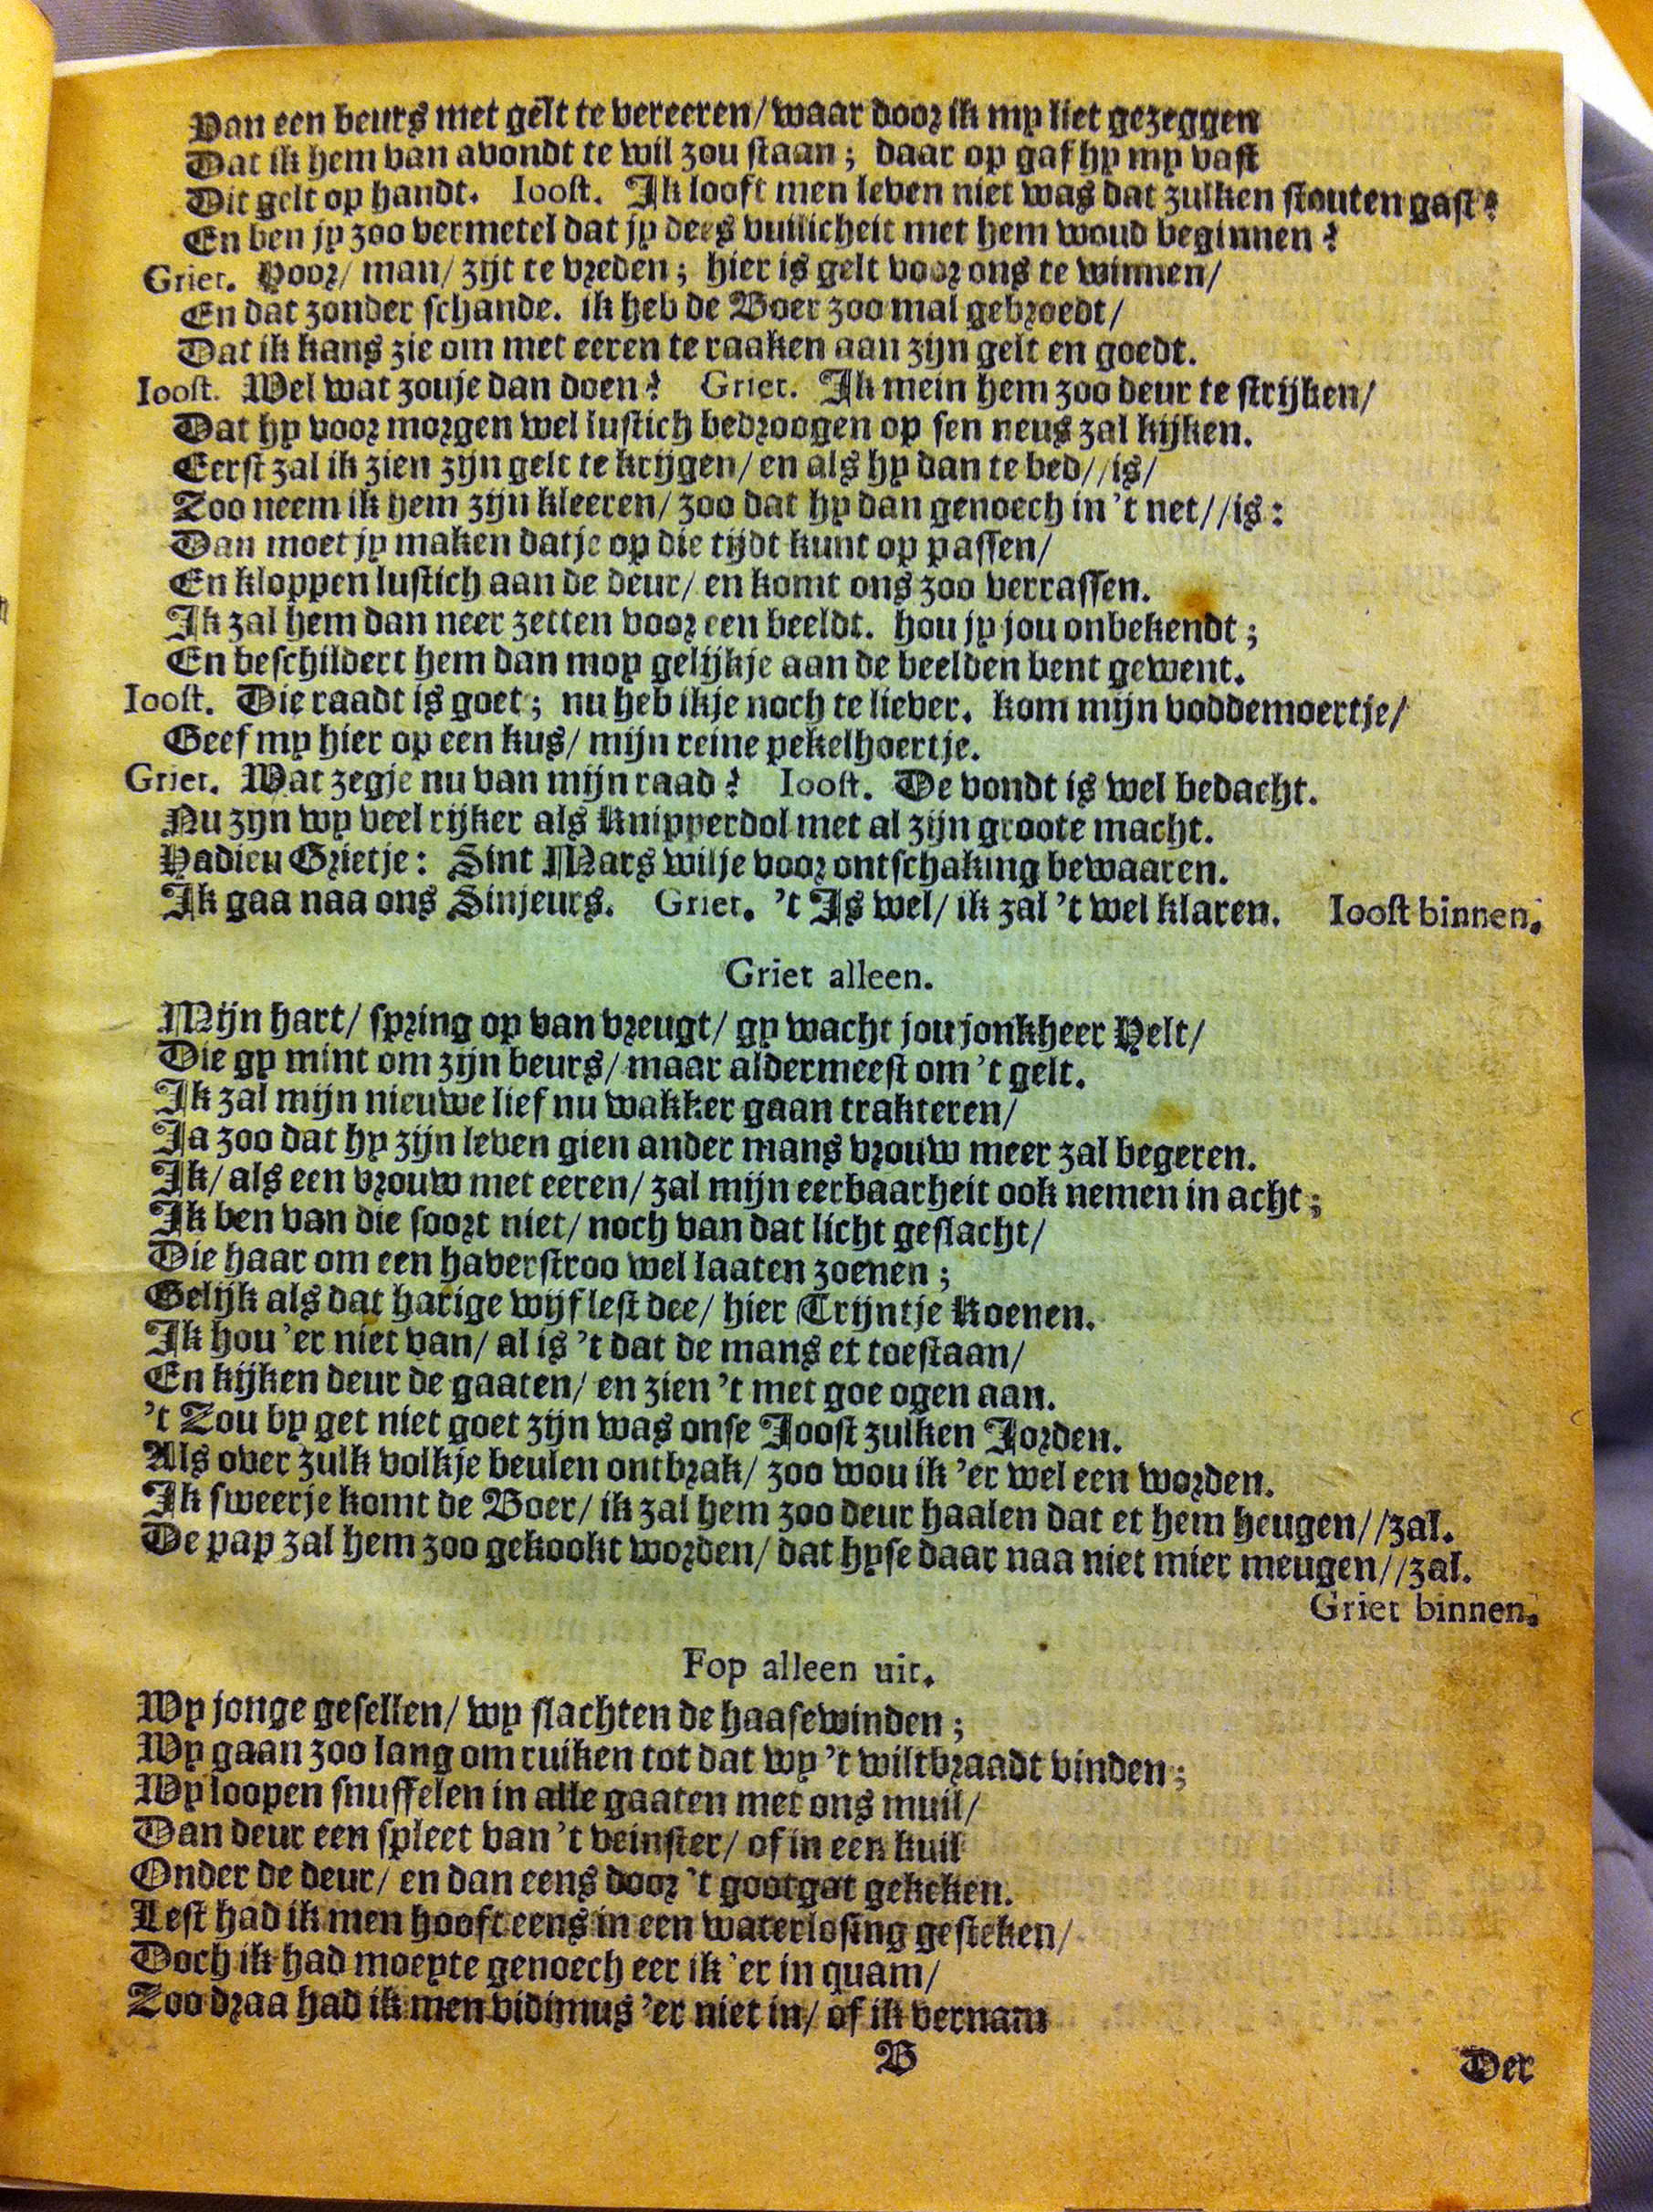 Van een beurs met gelt te vereeren/ waar door ik my liet gezeggen
Dat ik hem van avondt te wil zou staan; daar op gaf hy my vast
Dit gelt op handt. Ioost. Ik looft men leven niet was dat zulken stouten gast?
En ben jy zoo vermetel dat jy dees vuilicheit met hem woud beginnen?
Griet. Hoor/ man/ zijt te vreden; hier is gelt voor ons te winnen/
En dat zonder schande. ik heb de Boer zoo mal gebroedt/
Dat ik kans zie om met eeren te raaken aan zijn gelt en goedt.
Ioost. Wel wat zouje dan doen? Griet. Ik mein hem zoo deur te strijken/
Dat hy voor morgen wel lustich bedroogen op sen neus zal kijken.
Eerst zal ik zien zijn gelt te krijgen/ en als hy dan te bed//is/
Zoo neem ik hem zijn kleeren/ zoo dat hy dan genoech in 't net//is:
Dan moet jy maken datje op die tijdt kunt op passen/
En kloppen lustich aan de deur/ en komt ons zoo verrassen.
Ik zal hem dan neer zetten voor een beeldt. hou jy jou onbekendt;
En beschildert hem dan moy gelijkje aan de beelden bent gewent.
Ioost. Die raadt is goet; nu heb ikje noch te liever. kom mijn voddemoertje/
Geef my hier op een kus/ mijn reine pekelhoertje.
Griet. Wat zegje nu van mijn raad? Ioost. De vondt is wel bedacht.
Nu zijn wy veel rijker als Knipperdol met al zijn groote macht.
Hadieu Grietje: Sint Mars wilje voor ontschaking bewaaren.
Ik gaa naa ons Sinjeurs. Griet. 't Is wel/ ik zal 't wel klaren. Ioost binnen.
Griet alleen.
Mijn hart/ spring op van vreugt/ gy wacht jou jonkheer Helt/
Die gy mint om zijn beurs/ maar aldermeest om 't gelt.
Ik zal mijn nieuwe lief nu wakker gaan trakteren/
Ja zoo dat hy zijn leven gien ander mans vrouw meer zal begeren.
Ik/ als een vrouw met eeren/ zal mijn eerbaarheit ook nemen in acht;
Ik ben van die soort niet/ noch van dat licht geslacht/
Die haar om een haverstroo wel laaten zoenen;
Gelijk als dat harige wijf lest dee/ hier Trijntje Koenen.
Ik hou 'er niet van/ al is 't dat de mans et toestaan/
En kijken deur de gaaten/ en zien 't met goe ogen aan.
't Zou by get niet goet zijn was onse Joost zulken Jorden.
Als over zulk volkje beulen ontbrak/ zoo wou ik 'er wel een worden.
Ik sweerje komt de Boer/ ik zal hem zoo deur haalen dat et hem heugen//zal.
De pap zal hem zoo gekookt worden/ dat hyse daar naa niet mier meugen//zal.
Griet binnen.
Fop alleen uit.
Wy jonge gesellen/ wy slachten de haasewinden;
Wy gaan zoo lang om ruiken tot dat wy 't wiltbraadt vinden;
Wy loopen snuffelen in alle gaaten met ons muil/
Dan deur een spleet van 't veinster/ of in een kuil
Onder de deur/ en dan eens door 't gootgat gekeken.
Lest had ik men hooft eens in een waterlosing gesteken/
Doch ik had moeyte genoech eer ik 'er in quam/
Zoo draa had ik men vidimus 'er niet in/ of ik vernam
B
Der